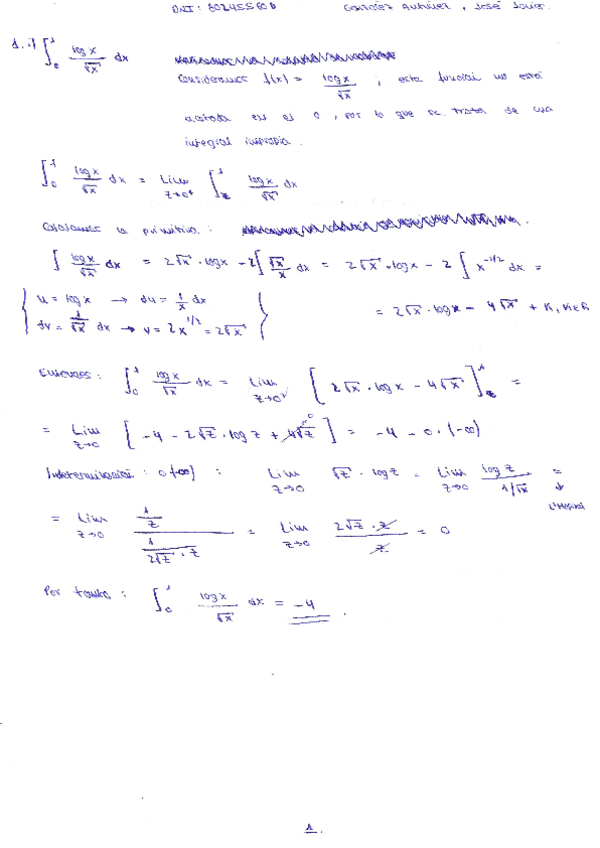 DNI:
González , José Javier.
∫₀¹ logx/√x dx
Consideramos f(x) = logx/√x , esta función no está
acotada en el 0 , por lo que se trata de una
integral impropia.
∫₀¹ logx/√x dx = Lim z→0⁺ ∫_z¹ logx/√x dx
Calculamos la primitiva :
∫ logx/√x dx = 2√x · logx - 2∫ √x/x dx = 2√x · logx - 2 ∫ x^(-1/2) dx =
u = logx → du = 1/x dx
dv = 1/√x dx → v = 2x^(1/2) = 2√x
= 2√x · logx - 4√x + K, K∈R
Entonces : ∫₀¹ logx/√x dx = Lim z→0⁺ [ 2√x · logx - 4√x ]_z¹ =
= Lim z→0 [ -4 - 2√z · logz + 4√z ] = -4 - 0 · (-∞)
Indeterminación : 0(-∞) : Lim z→0 √z · logz = Lim z→0 logz / 1/√x =
L'Hôpital
= Lim z→0 (1/z) / (1/(2√z · z)) = Lim z→0 2√z · z / z = 0
Por tanto : ∫₀¹ logx/√x dx = -4 .
1.